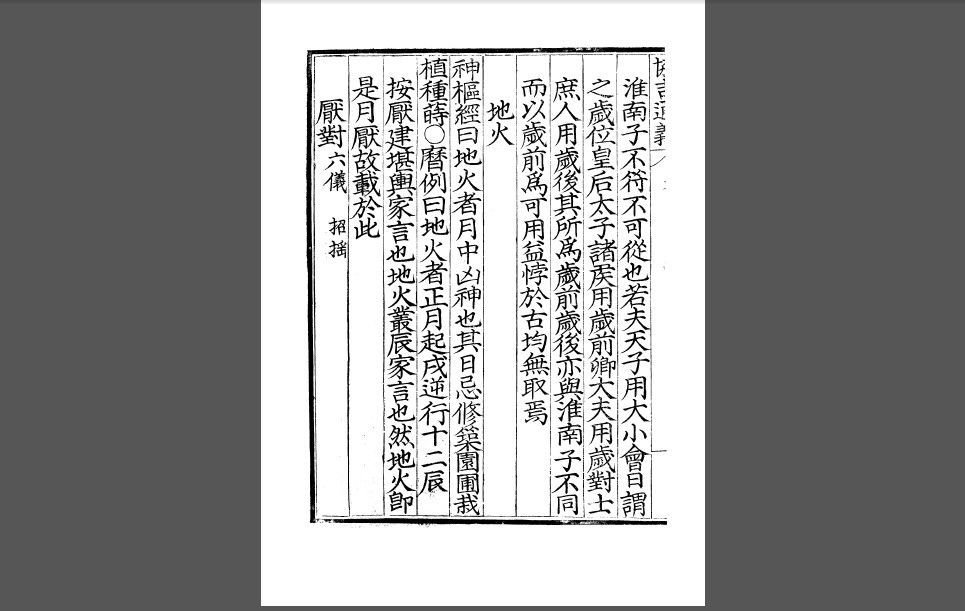 淮南子不符不可從也若夫天子用大小會日謂
之歲位皇后太子諸侯用歲前卿大夫用歲對士
庶人用歲後其所爲歲前歲後亦與淮南子不同
而以歲前爲可用益悖於古均無取焉
地火
神樞經曰地火者月中凶神也其日忌修築園圃栽
植種蒔○曆例曰地火者正月起戌逆行十二辰
按厭建堪輿家言也地火叢辰家言也然地火即
是月厭故載於此
厭對六儀 招搖